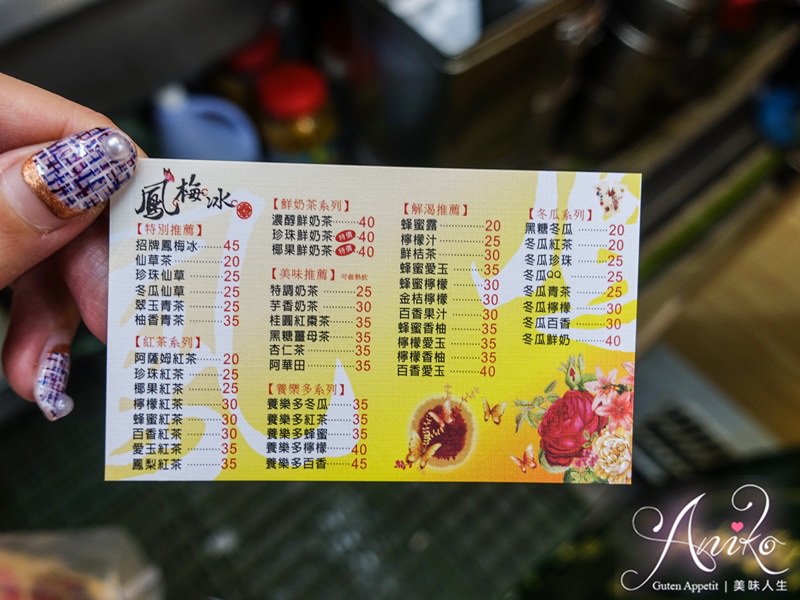 鳳梅冰
【特別推薦】
招牌鳳梅冰……45
仙草茶……20
珍珠仙草……25
冬瓜仙草……25
翠玉青茶……25
柚香青茶……35
【紅茶系列】
阿薩姆紅茶……20
珍珠紅茶……25
椰果紅茶……25
檸檬紅茶……30
蜂蜜紅茶……30
百香紅茶……30
愛玉紅茶……35
鳳梨紅茶……35
【鮮奶茶系列】
濃醇鮮奶茶……40
珍珠鮮奶茶 特價 40
椰果鮮奶茶 特價 40
【美味推薦】可做熱飲
特調奶茶……25
芋香奶茶……30
桂圓紅棗茶……35
黑糖薑母茶……35
杏仁茶……35
阿華田……35
【養樂多系列】
養樂多冬瓜……35
養樂多紅茶……35
養樂多蜂蜜……35
養樂多檸檬……40
養樂多百香……45
【解渴推薦】
蜂蜜露……20
檸檬汁……25
鮮桔茶……30
蜂蜜愛玉……35
蜂蜜檸檬……30
金桔檸檬……30
百香果汁……30
蜂蜜香柚……35
檸檬愛玉……35
檸檬香柚……35
百香愛玉……40
【冬瓜系列】
黑糖冬瓜……20
冬瓜紅茶……20
冬瓜珍珠……25
冬瓜QQ……25
冬瓜青茶……25
冬瓜檸檬……30
冬瓜百香……30
冬瓜鮮奶……40
Aniko
Guten Appetit | 美味人生